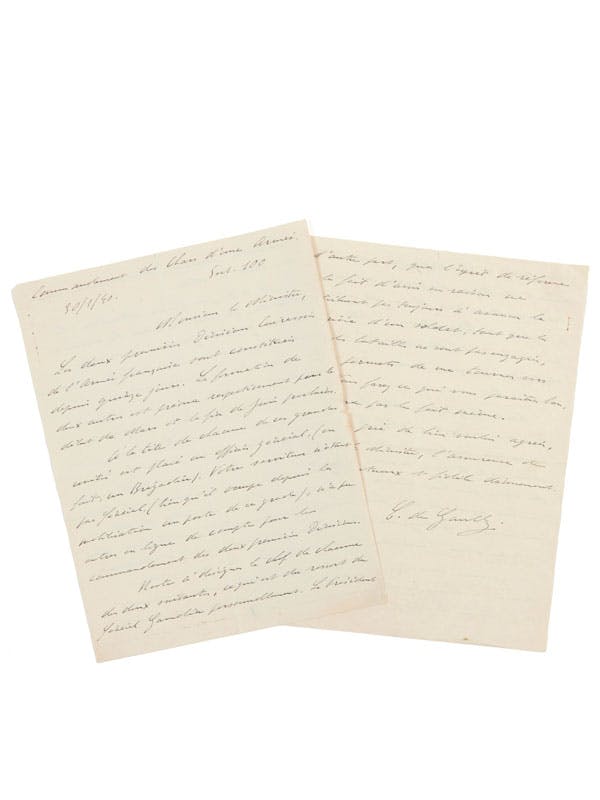 Commandement des Chars d'une Armée.
Sect. 100
30/1/40.
Monsieur le Ministre,
Les deux premières Divisions Cuirassées
de l'Armée française sont constituées
depuis quinze jours. La formation de
deux autres est prévue respectivement pour le
début de Mars et la fin de Juin prochains.
A la tête de chacune de ces grandes
unités est placé un officier général (en
fait, un Brigadier). Votre serviteur n'étant
pas Général (bien qu'il occupe depuis la
mobilisation un poste de ce grade), n'a pu
entrer en ligne de compte pour les
commandement des deux premières Divisions.
Reste à désigner le chef de chacune
des deux suivantes, ce qui est du ressort du
Général Gamelin personnellement. Le Président
d'autre part, que l'esprit de réforme
le fait d'avoir eu raison ne
pas toujours à assurer la
d'un soldat, tant que la
bataille ne sont pas engagées,
permets de me tourner vers
en ferez ce qui vous paraîtra bon,
par le fait même.
prie de bien vouloir agréer,
Ministre, l'assurance de
et fidèle dévouement.
C. de Gaulle.